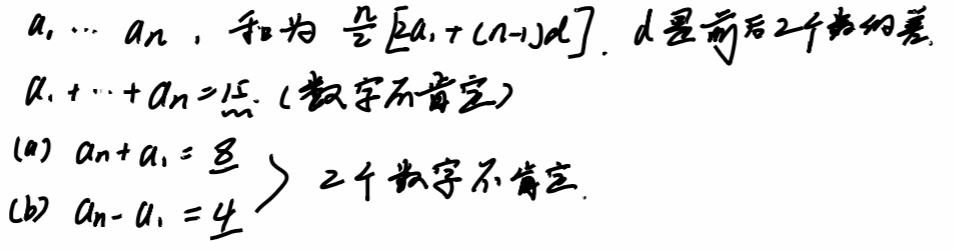 a₁ ⋯ aₙ, 和为 n/2[2a₁+(n-1)d]. d是前后2个数的差.
a₁+⋯+aₙ=15. (数字不肯定)
(a) aₙ+a₁=8
(b) aₙ-a₁=4
2个数字不肯定.